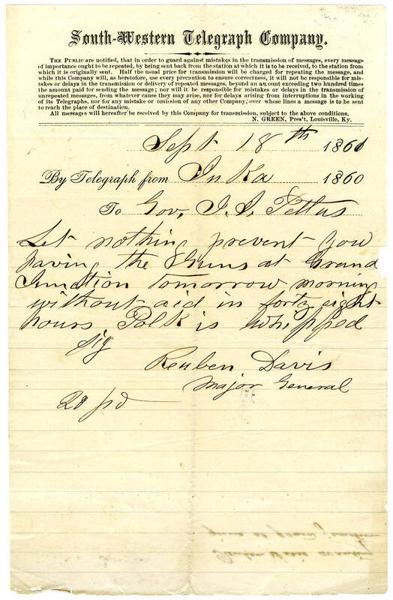 South-Western Telegraph Company.
THE PUBLIC are notified, that in order to guard against mistakes in the transmission of messages, every message
of importance ought to be repeated, by being sent back from the station at which it is to be received, to the station from
which it is originally sent. Half the usual price for transmission will be charged for repeating the message, and
while this Company will, as heretofore, use every precaution to ensure correctness, it will not be responsible for mis-
takes or delays in the transmission or delivery of repeated messages, beyond an amount exceeding two hundred times
the amount paid for sending the message; nor will it be responsible for mistakes or delays in the transmission of
unrepeated messages, from whatever cause they may arise, nor for delays arising from interruptions in the working
of its Telegraphs, nor for any mistake or omission of any other Company, over whose lines a message is to be sent
to reach the place of destination.
All messages will hereafter be received by this Company for transmission, subject to the above conditions.
N. GREEN, Pres't, Louisville, Ky.
Sept 18th 1861
By Telegraph from In Ka 1860
To Gov. J. J. Pettus
Let nothing prevent you
having the Guns at Grand
Junction tomorrow morning
without aid in forty eight
hours Polk is whipped
sig
Reuben Davis
Major General
20 pd